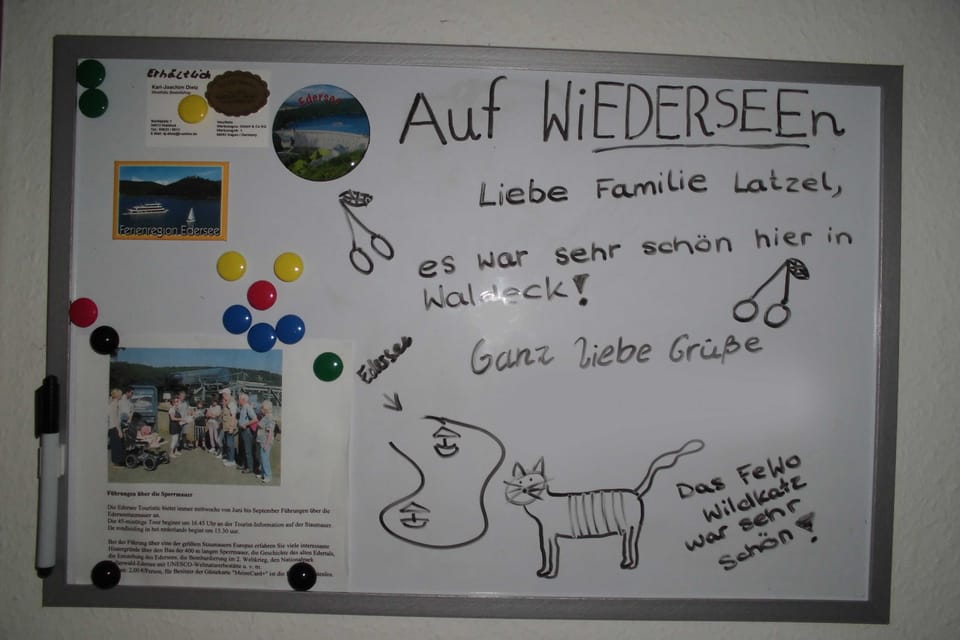 Erhältlich
Karl-Joachim Dietz
Edersee
Ferienregion Edersee
AUF WiEDERSEEn
Liebe Familie Latzel,
es war sehr schön hier in
Waldeck!
Ganz liebe Grüße
Edersee
Das FeWo
Wildkatz
war sehr
schön!
Führungen über die Sperrmauer
Die Edersee Touristic bietet immer mittwochs von Juni bis September Führungen über die
Ederseestaumauer an.
Die 45-minütige Tour beginnt um 16.45 Uhr an der Tourist-Information auf der Staumauer.
De rondleiding in het nederlands begint um 15.30 uur.
Bei der Führung über eine der größten Staumauern Europas erfahren Sie viele interessante
Hintergründe über den Bau der 400 m langen Sperrmauer, die Geschichte des alten Edertals,
die Entstehung des Edersees, die Bombardierung im 2. Weltkrieg, den Nationalpark
Kellerwald-Edersee mit UNESCO-Weltnaturerbestätte u. v. m.
2,00 €/Person, für Besitzer der Gästekarte "MeineCard+" ist die